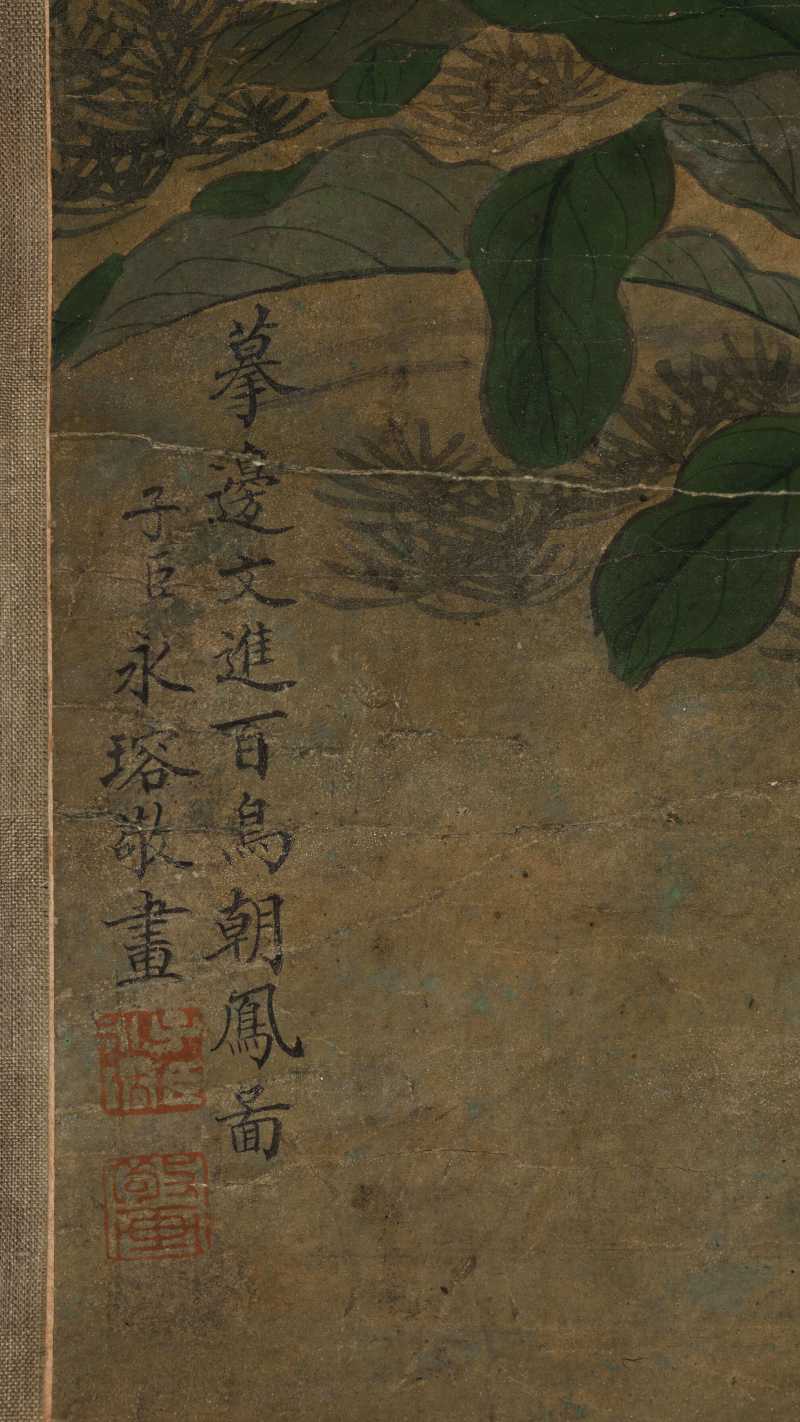 摹邊文進百鳥朝鳳啚
子臣永瑢敬畫